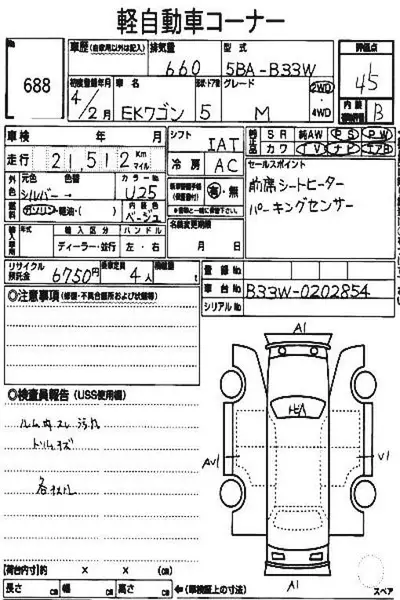 軽自動車コーナー
No. 688
車歴(自家用以外は記入) 排気量 660 型式 5BA-B33W 評価点 4.5
初度登録年月 4/2月 車名 EKワゴン ドア数 5 グレード M 2WD・4WD 内装 B
車検 年 月 シフト IAT SR 純AW PS PW
走行 21,512 Km マイル 冷房 AC カワ TV ナビ エアB
外色 元色 シルバー → 色替 カラーNo. U25 有・無 セールスポイント
燃料 ガソリン・軽油・( ) 内装色 ベージュ 前席シートヒーター
輸入車用 年式 輸入区分 ハンドル 名義変更期限 パーキングセンサー
ディーラー・並行 左・右 月 日
リサイクル預託金 6750円 乗車定員 4人 積載量 t 登録No.
車台No. B33W-0202854
シリアルNo.
◎注意事項(修復・不具合箇所および状態等)
A1
◎検査員報告(USS使用欄)
ルーム内スレ汚れ
トリムキズ
AU1
U1
各
A1
【荷台内寸】約 × × (cm)
長さ cm 幅 cm 高さ cm ←(車検証上の寸法) スペア